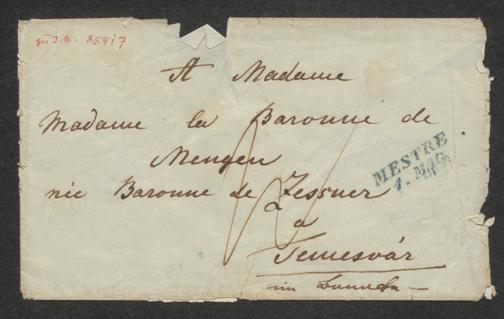 zu I.N. 85417
A Madame
Madame la Baronne de
Mengen
née Baronne de Zessner
a
Temesvár
im Banate
MESTRE
1. MAG.